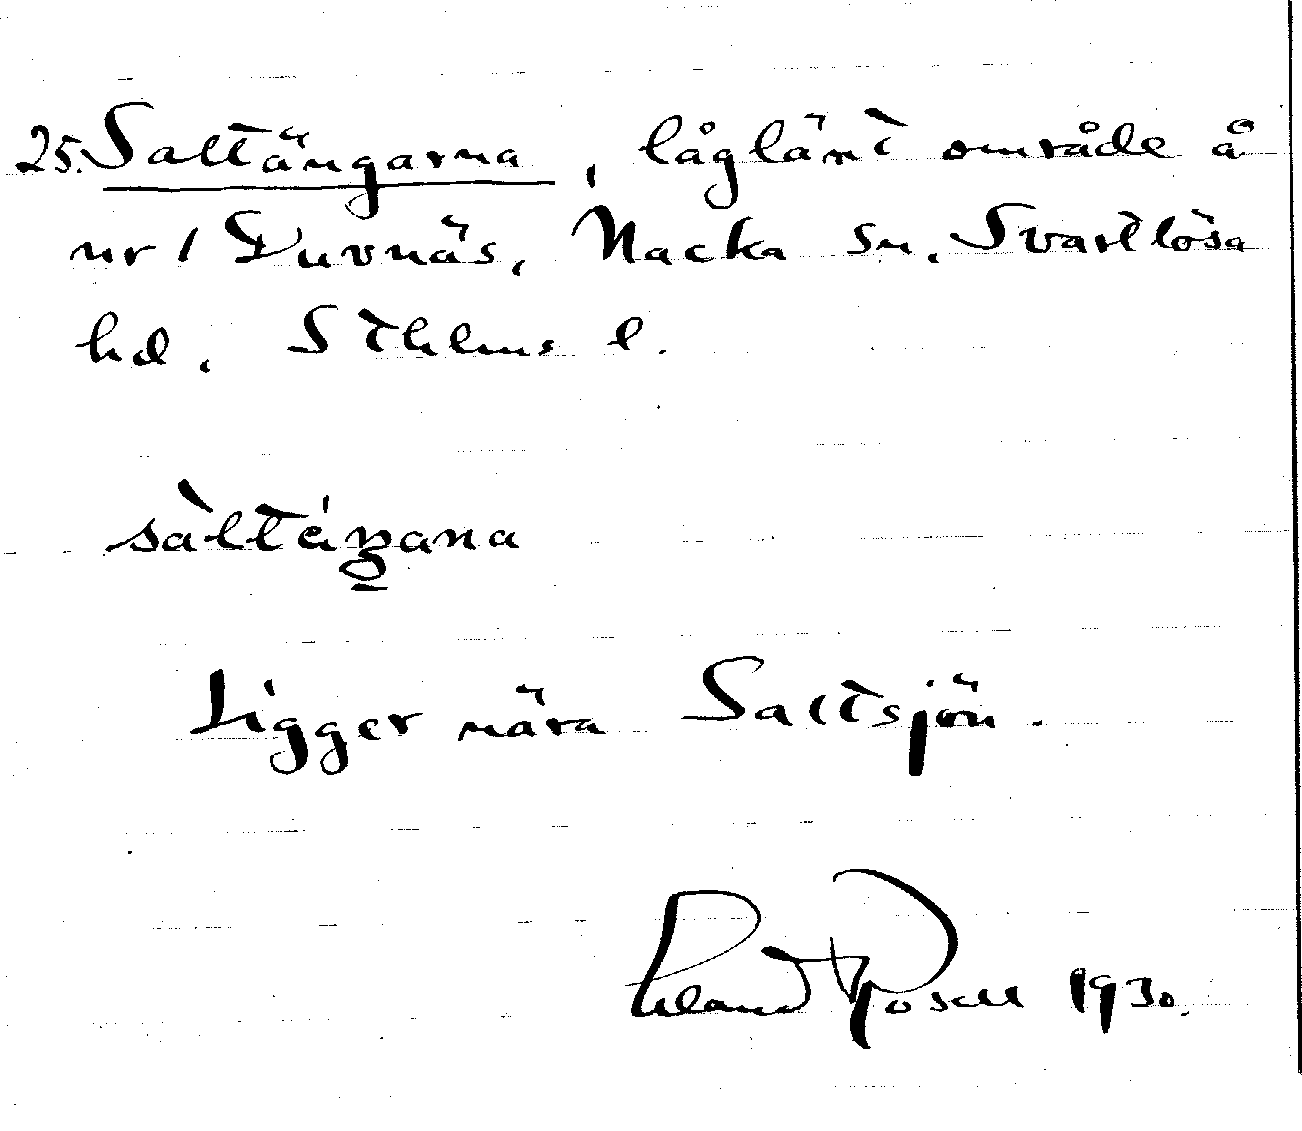 25. Saltängarna, låglänt område å
nr 1 Duvnäs, Nacka sn. Svartlösa
hd. Sthlms l.
sàltáŋana
Ligger nära Saltsjön.
1930.